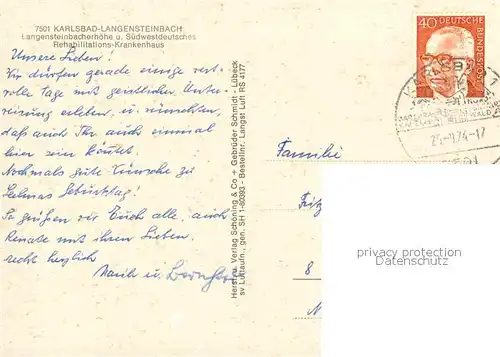 7501 KARLSBAD-LANGENSTEINBACH
Langensteinbacherhöhe u. Südwestdeutsches
Rehabilitations-Krankenhaus
Unsere Lieben!
Wir dürfen gerade einige wert-
volle Tage mit geistlicher Unter-
weisung erleben, u. wünschten,
daß auch Ihr auch einmal
hier sein könntet.
Nochmals gute Wünsche zu
Helmas Geburtstag!
So grüßen wir Euch alle, auch
Renate mit ihren Lieben.
recht herzlich
u.
Herst. u. Verlag Schöning & Co + Gebrüder Schmidt · Lübeck
sv Luftaufn., gen. SH 1-80393 - Bestellnr. Langst Luft RS 4177
40 DEUTSCHE
BUNDESPOST
74-17
Familie
Fritz
8
privacy protection
watermark